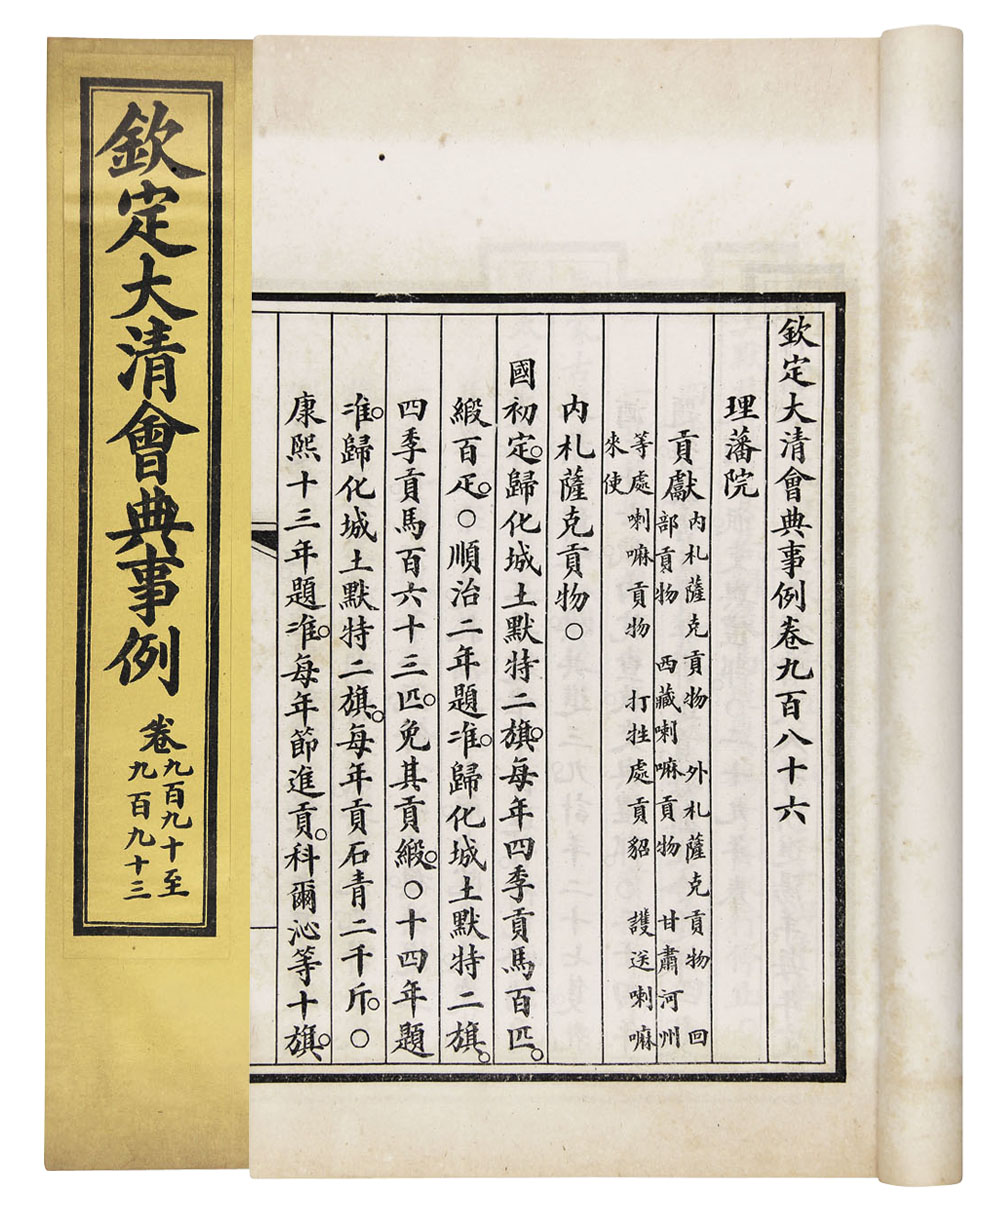 欽定大清會典事例
卷九百九十至
九百九十三
欽定大清會典事例卷九百八十六
理藩院
貢獻
内札薩克貢物 外札薩克貢物 回
部貢物 西藏喇嘛貢物 甘肅河州
等處喇嘛貢物 打牲處貢貂 護送喇嘛
來使
内札薩克貢物○
國初定。歸化城土默特二旗。每年四季貢馬百匹。
緞百疋。○順治二年題准。歸化城土默特二旗。
四季貢馬百六十三匹。免其貢緞。○十四年題
准。歸化城土默特二旗。每年貢石青二千斤。○
康熙十三年題准。每年節進貢。科爾沁等十旗。